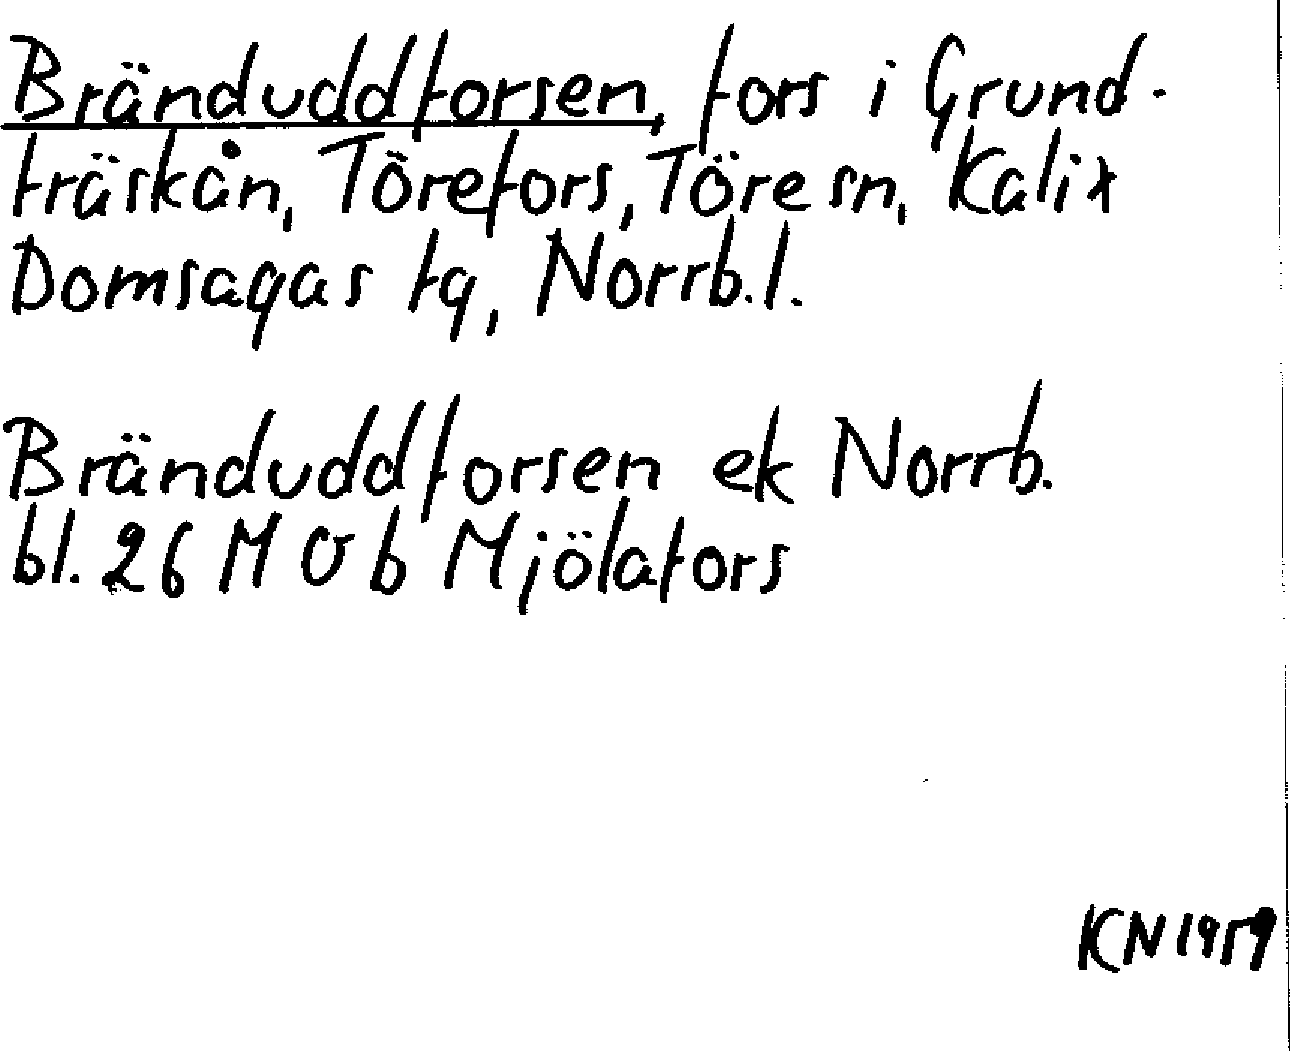 Bränduddforsen, fors i Grund-
träskån, Törefors, Töre sn, Kalix
Domsagas tg, Norrb. l.
Bränduddforsen ek Norrb.
bl. 26 M Ob Mjölafors
KN 1959